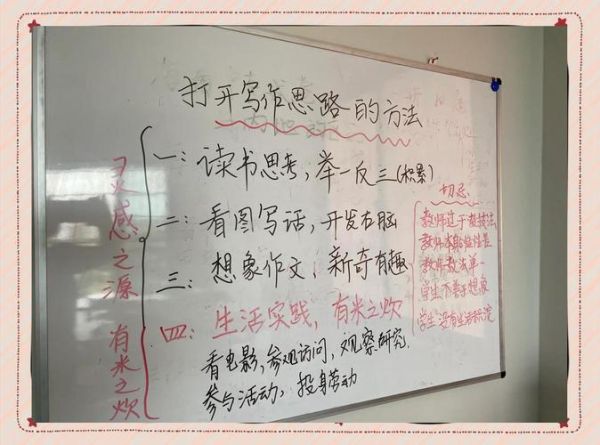 打开写作思路的方法
灵感之源 有米之炊
一：读书思考，举一反三(积累)
二：看图写话，开发右脑
三：想象作文：新奇有趣
四：生活实践，有米之炊
看电影，参观访问，观察研究
参与活动，投身劳动
切忌：
教师过于教技法
教师本
教师教法单一
学生不善于想象
学生没有生活